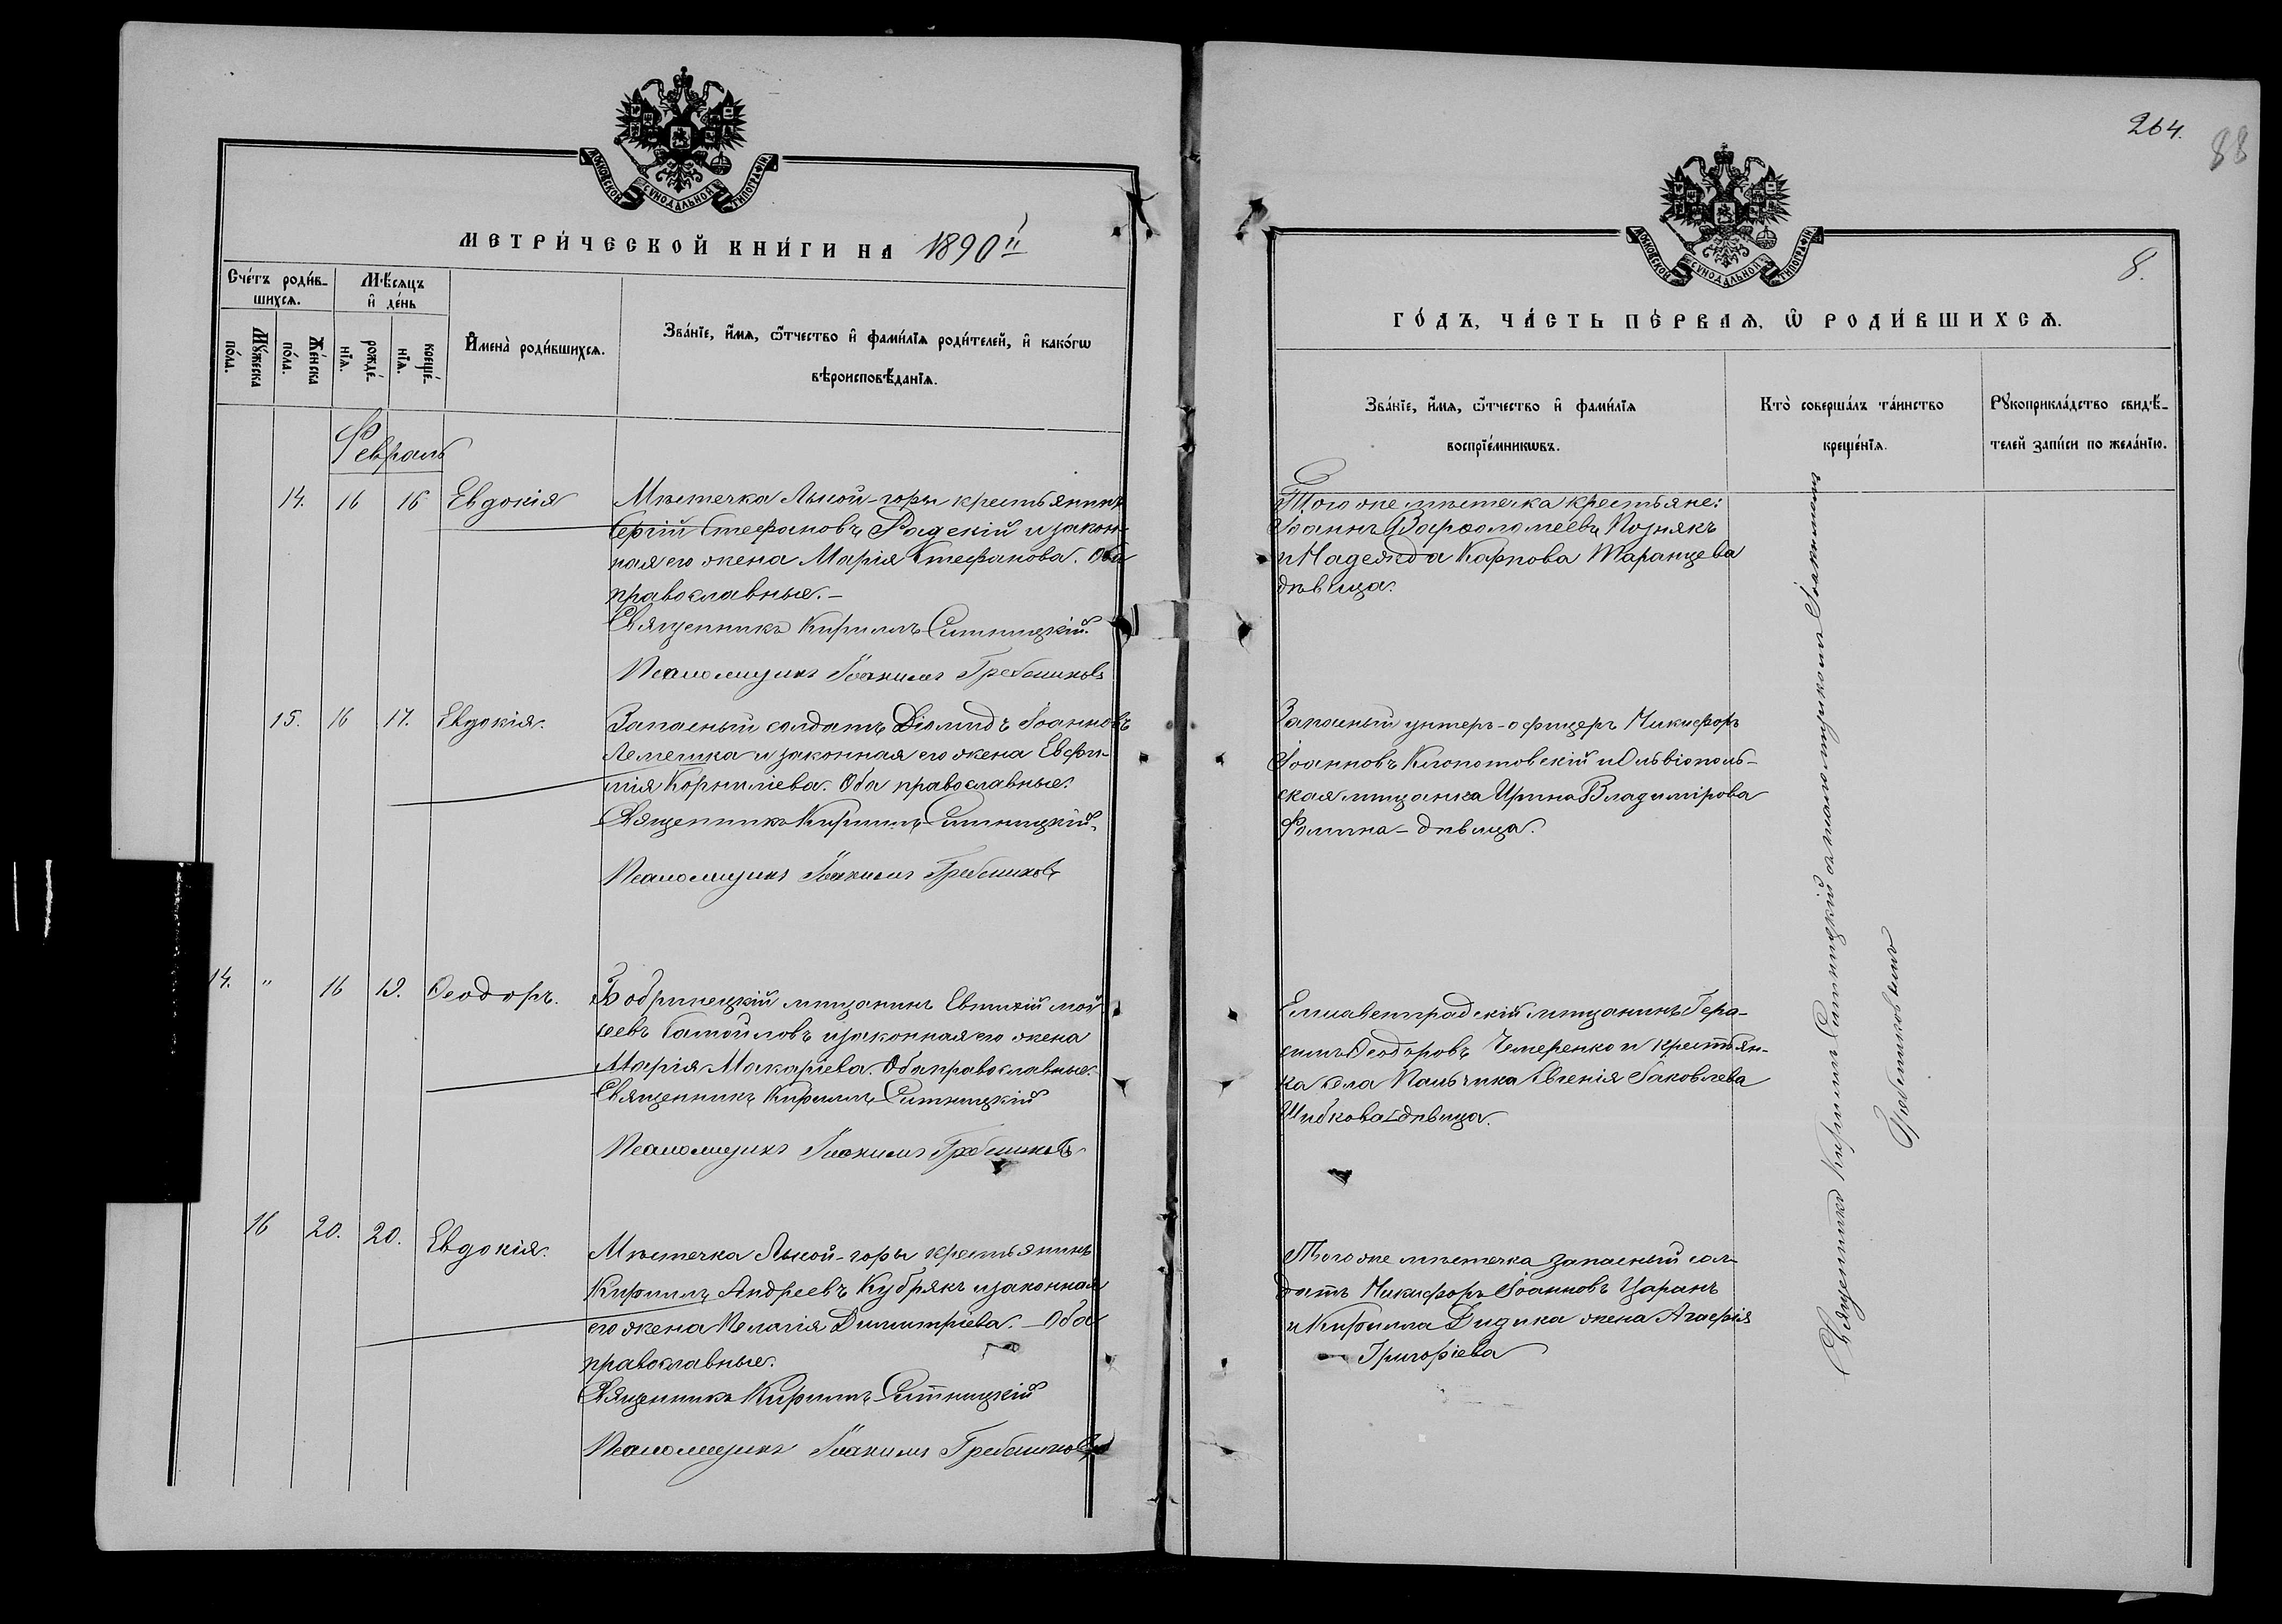 МОСКОВСКОЙ СѴНОДАЛЬНОЙ ТИПОГРАФІИ
МЕТРИ́ЧЕСКОЙ КНИ́ГИ НА 1890й
Сче́тъ роди́в-
шихся.
Мѣ́сяцъ
и҆ де́нь
Му́жеска
по́ла.
Же́нска
по́ла.
рожде́-
нїя.
креще́-
нїя.
И҆мена̀ роди́вшихся.
Зва́нїе, и҆́мя, ѻ҆́тчество и҆ фами́лїя роди́телей, и҆ како́гѡ
вѣроисповѣ́данїя.
Февраль
14. 16 16 Евдокія
Мѣстечка Лысой-горы крестьянинъ
Сергій Стефановъ Радскій и закон-
ная его жена Марія Стефанова. Оба
православные.-
Священникъ Кириллъ Ситницкій.
Псаломщикъ Іоакимъ Гребенниковъ
15. 16 17. Евдокія.
Запасный солдатъ Діомидъ Іоанновъ
Лемешка и законная его жена Евфи-
мія Корниліева. Оба православные.
Священникъ Кириллъ Ситницкій.
Псаломщикъ Іоакимъ Гребенниковъ
14. " 16 19. Ѳеодоръ.
Бобринецкій мѣщанинъ Евтихій Мой
сеевъ Самойловъ и законная его жена
Марія Макаріева. Оба православные.
Священникъ Кириллъ Ситницкій
Псаломщикъ Іоакимъ Гребенниковъ
16 20. 20. Евдокія.
Мѣстечка Лысой-горы крестьянинъ
Кириллъ Андреевъ Кубрякъ и законная
его жена Пелагія Димитріева. - Оба
православные.
Священникъ Кириллъ Ситницкій
Псаломщикъ Іоакимъ Гребенниковъ
264.
88
МОСКОВСКОЙ СѴНОДАЛЬНОЙ ТИПОГРАФІИ
8.
ГО́ДЪ, ЧА́СТЬ ПЕ́РВАЯ, Ѡ҆ РОДИ́ВШИХСЯ.
Зва́нїе, и҆́мя, ѻ҆́тчество и҆ фами́лїя
воспрїе́мникѡвъ.
Кто̀ соверша́лъ та́инство
креще́нїя.
Рꙋкоприкла́дство свидѣ́-
телей за́писи по жела́нїю.
Того же мѣстечка крестьяне:
Іоаннъ Варѳоломеевъ Познякъ
и Надежда Карпова Таранцева
дѣвица.
Запасный унтеръ-офицеръ Никифоръ
Іоанновъ Клопотовскій и Ольвіополь-
ская мѣщанка Ирина Владимірова
Фомина - дѣвица.
Елисаветградскій мѣщанинъ Гера-
симъ Ѳеодоровъ Чемеренко и крестьян-
ка села Пальчика Евгенія Іаковлева
Шибкова - дѣвица.
Того же мѣстечка запасный сол-
датъ Никифоръ Іоанновъ Царанъ
и Кирилла Дидика жена Агафія
Григоріева
Священникъ Кириллъ Ситницкій съ псаломщикомъ Іоакимомъ
Гребенниковымъ